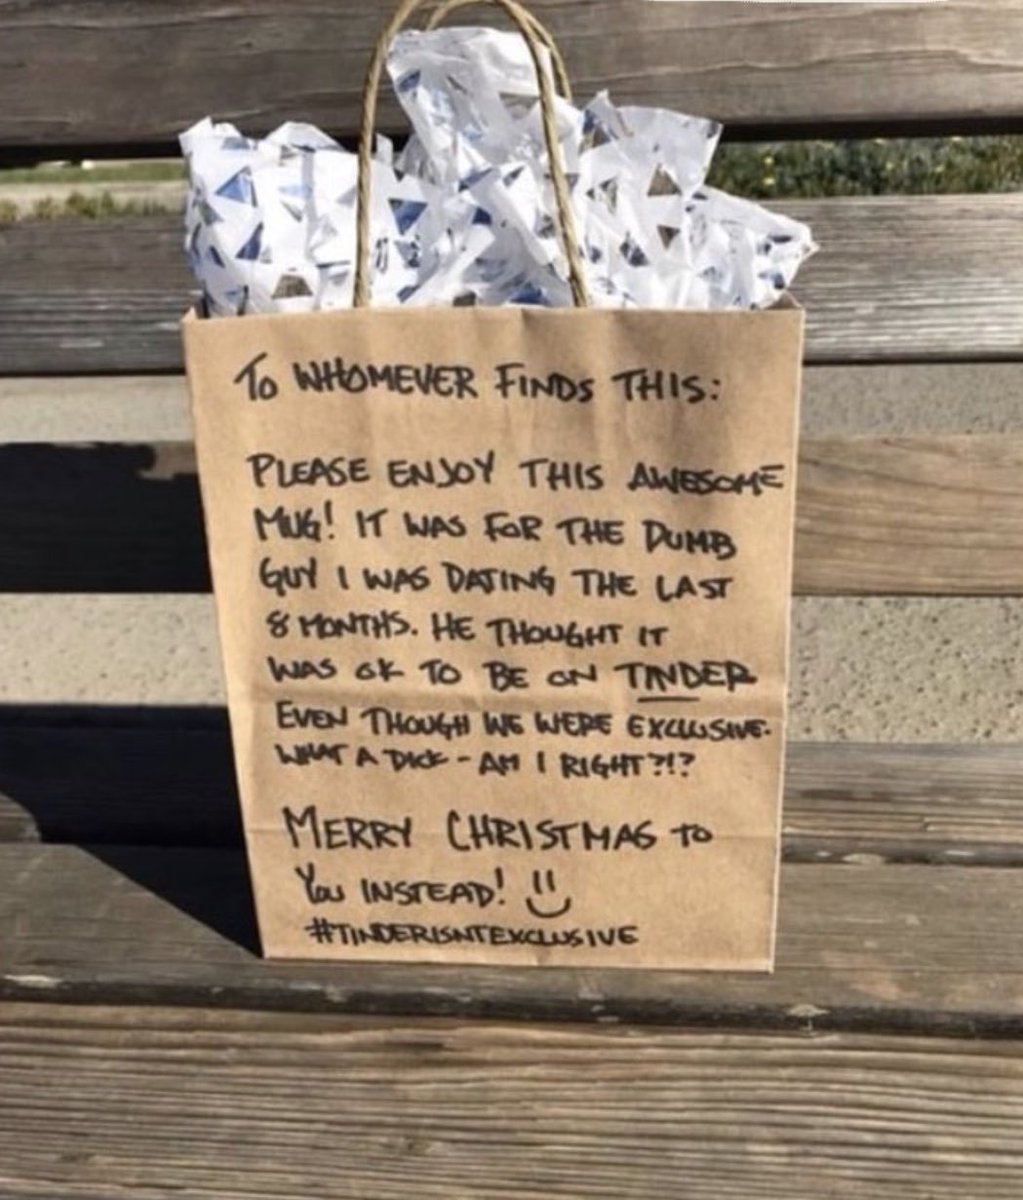 TO WHOMEVER FINDS THIS:
PLEASE ENJOY THIS AWESOME
MUG! IT WAS FOR THE DUMB
GUY I WAS DATING THE LAST
8 MONTHS. HE THOUGHT IT
WAS OK TO BE ON TINDER
EVEN THOUGH WE WERE EXCLUSIVE.
WHAT A DICK - AM I RIGHT?!?
MERRY CHRISTMAS TO
YOU INSTEAD!
#TINDERISNTEXCLUSIVE